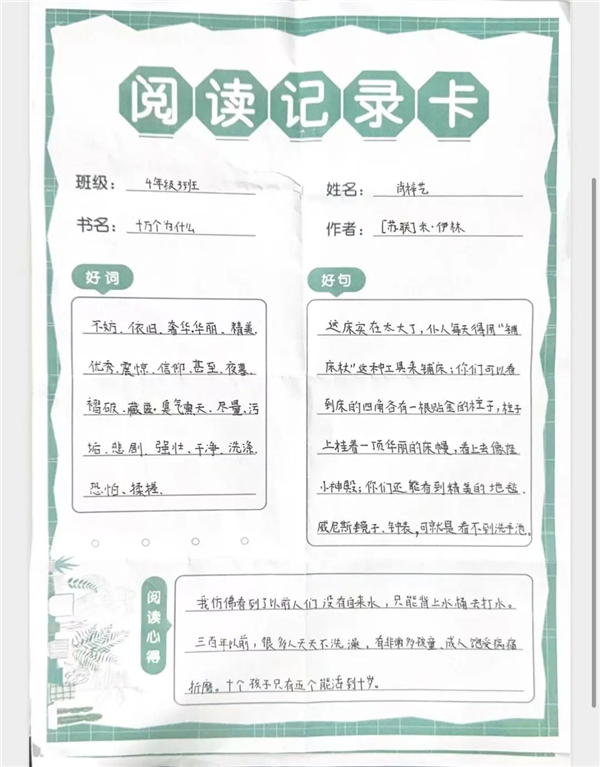 阅读记录卡
班级： 4年级3班
姓名： 肖梓艺
书名： 十万个为什么
作者： [苏联]米·伊林
好词
不妨、依旧、奢华、华丽、精美、
优秀、震惊、信仰、甚至、夜幕、
褶皱、藏匿、臭气熏天、尽量、污
垢、悲剧、强壮、干净、洗涤、
恐怕、揉搓、
好句
这床实在太大了，仆人每天得用“铺
床杖”这种工具来铺床；你们可以看
到床的四角各有一根贴金的柱子，柱子
上挂着一顶华丽的床幔，看上去像座
小神殿；你们还能看到精美的地毯、
威尼斯镜子、钟表，可就是看不到洗手池。
阅读心得
我仿佛看到了以前人们没有自来水，只能背上水桶去打水。
三百年以前，很多人天天不洗澡，有非常多孩童、成人饱受病痛
折磨。十个孩子只有五个能活到十岁。